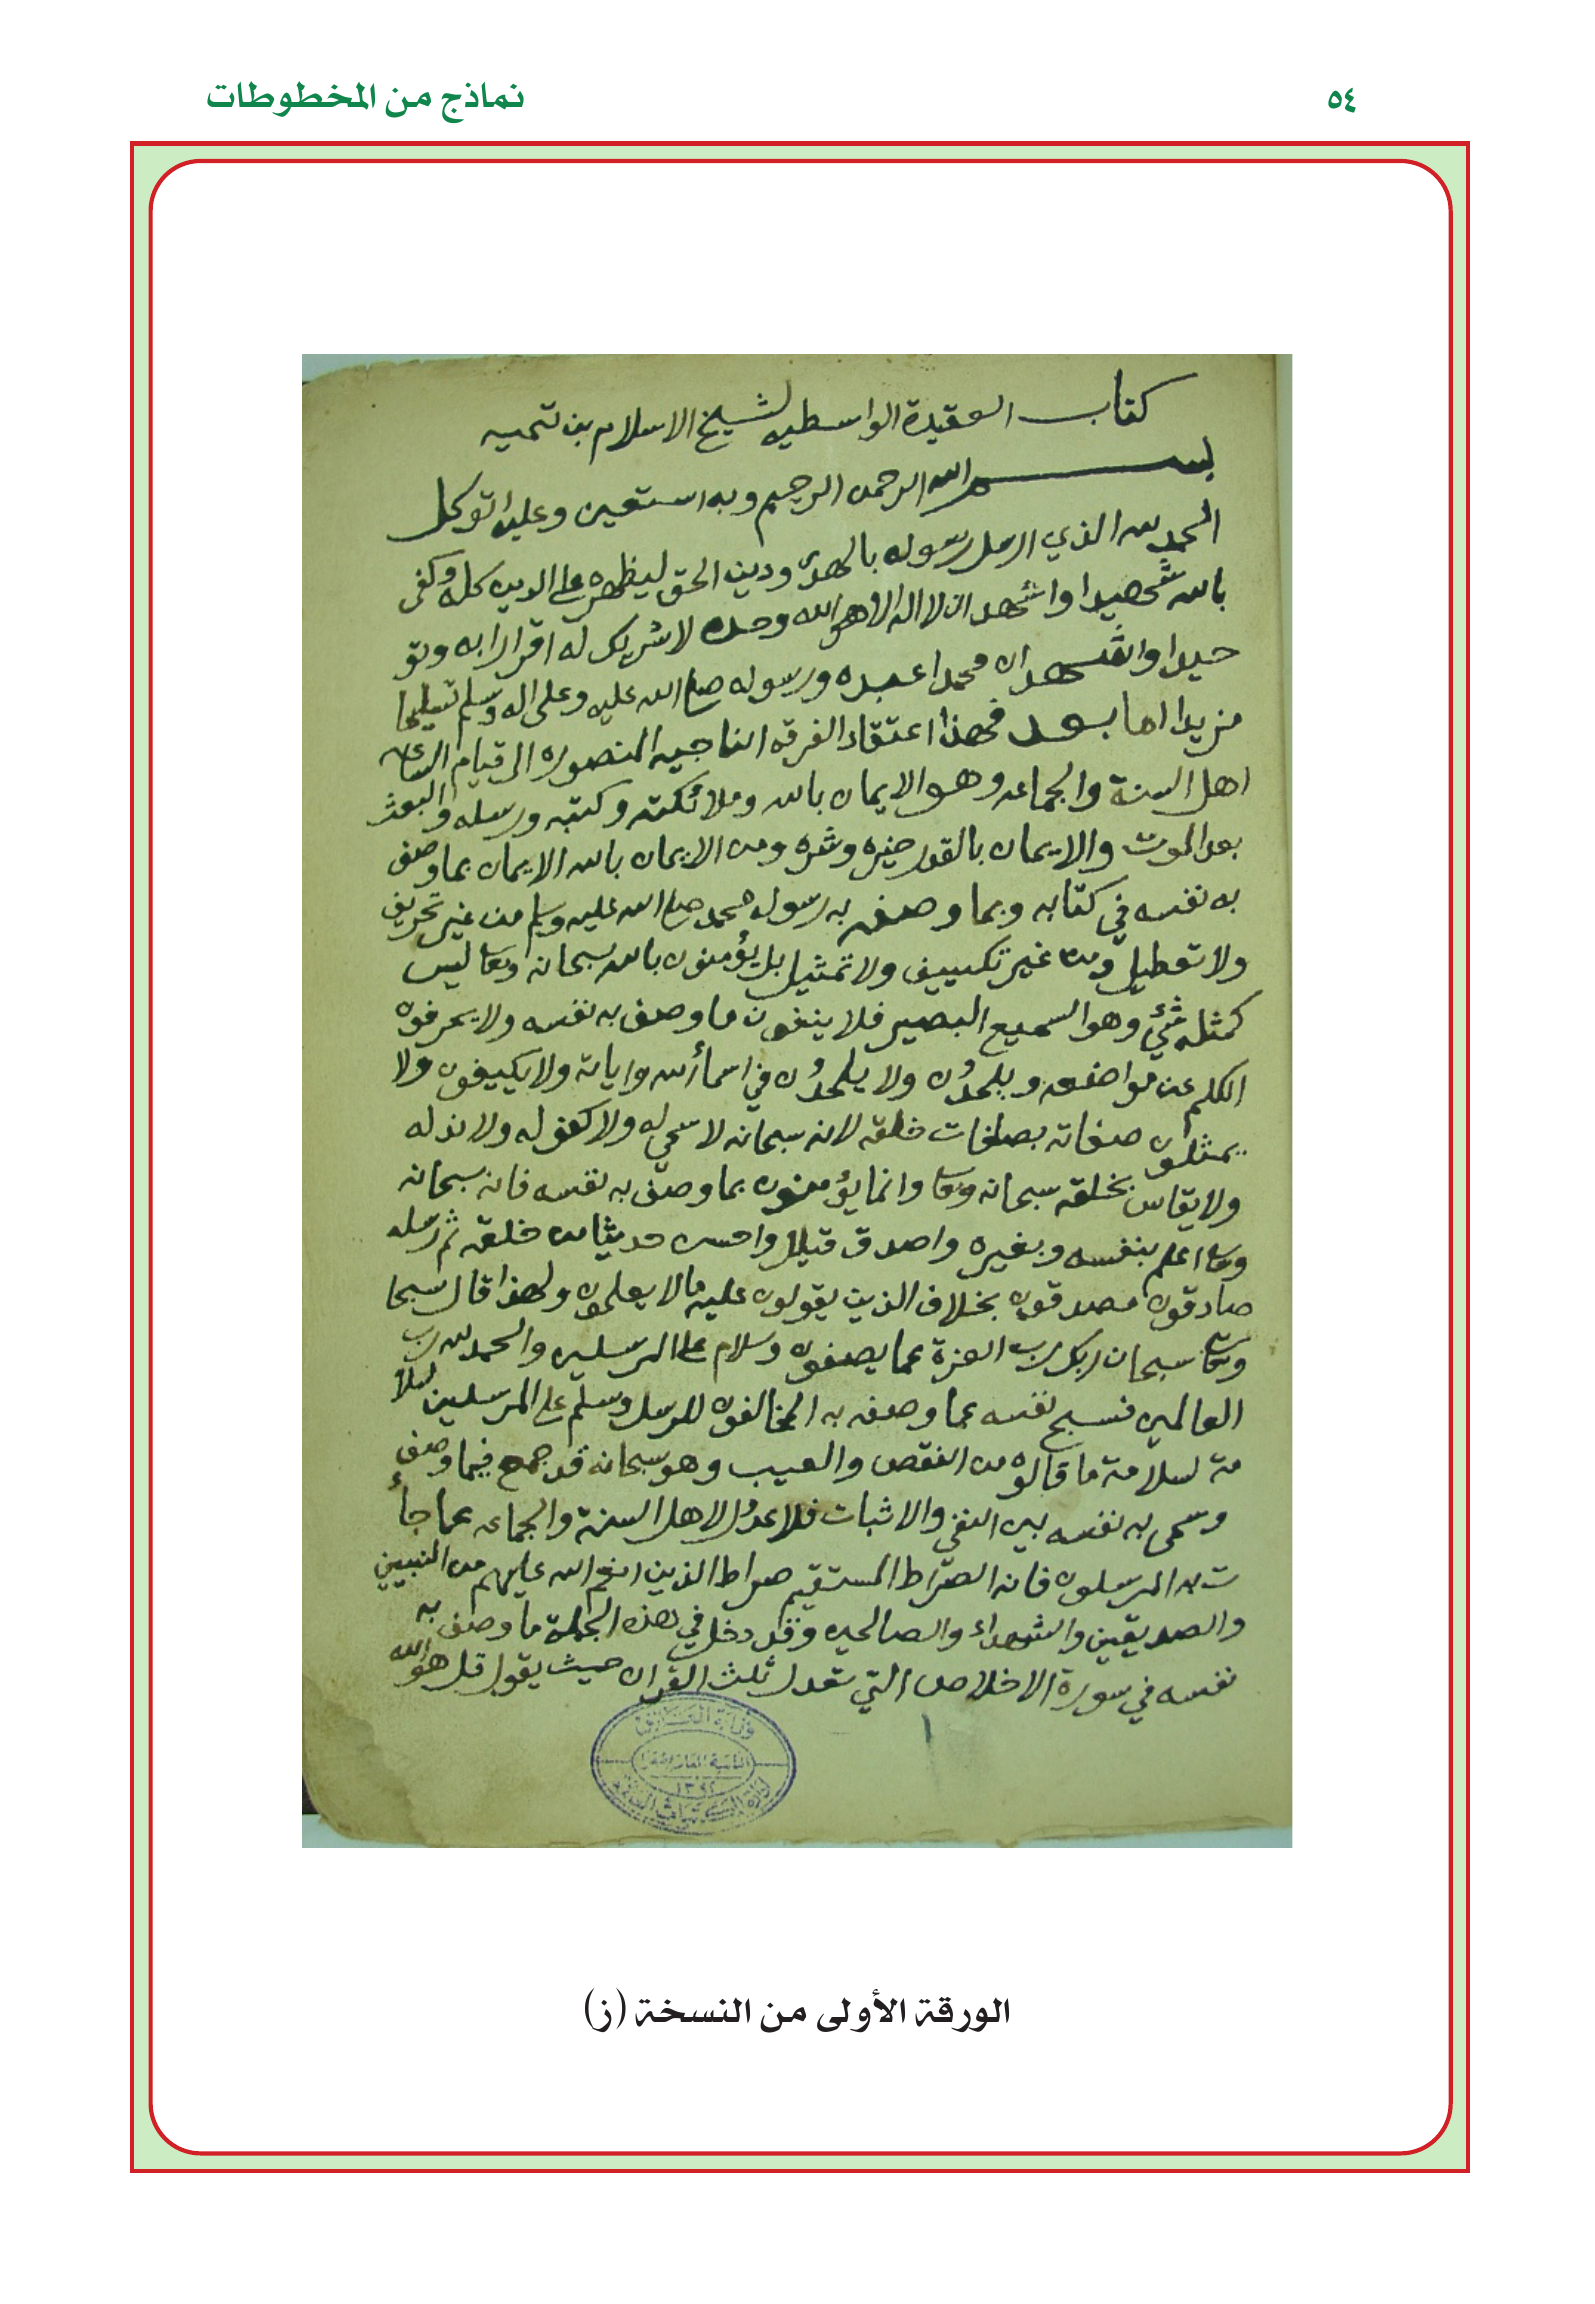 ٥٤
نماذج من المخطوطات
كتاب العقيدة الواسطيه لشيخ الاسلام بن تيميه
بسم الله الرحمن الرحيم وبه استعين وعليه اتوكل
الحمد لله الذي ارسل رسوله بالهدى ودين الحق ليظهره على الدين كله وكفى
بالله شهيدا واشهد ان لا اله الا هو الله وحده لا شريك له اقرارا به وتو
حيدا واشهد ان محمدا عبده ورسوله صلى الله عليه وعلى اله وسلم تسليما
مزيدا اما بعد فهذا اعتقاد الفرقه الناجيه المنصوره الى قيام الساعه
اهل السنة والجماعه وهو الايمان بالله وملائكته وكتبه ورسله والبعث
بعد الموت والايمان بالقدر خيره وشره ومن الايمان بالله الايمان بما وصف
به نفسه في كتابه وبما وصفه به رسوله محمد صلى الله عليه وسلم من غير تحريف
ولا تعطيل ومن غير تكييف ولا تمثيل بل يؤمنون بالله سبحانه وتعالى ليس
كمثله شئ وهو السميع البصير فلا ينفون ما وصف به نفسه ولا يحرفون
الكلم عن مواضعه ويلحدون ولا يلحدون في اسماء الله واياته ولا يكيفون ولا
يمثلون صفاته بصفات خلقه لانه سبحانه لا سمي له ولا كفو له ولا ند له
ولا يقاس بخلقه سبحانه وتعالى وانما يؤمنون بما وصف به نفسه فانه سبحانه
وتعالى اعلم بنفسه وبغيره واصدق قيلا واحسن حديثا من خلقه ثم رسله
صادقون مصدقون بخلاف الذين يقولون عليه ما لا يعلمون ولهذا قال سبحا
وتعالى سبحان ربك رب العزة عما يصفون وسلام على المرسلين والحمد لله رب
العالمين فسبح نفسه عما وصفه به المخالفون للرسل وسلم على المرسلين لسلا
مة لسلامة ما قالوه من النقص والعيب وهو سبحانه قد جمع فيما وصف
وسمى به نفسه بين النفي والاثبات فلا عدول لاهل السنة والجماعه عما جاء
ت به المرسلون فانه الصراط المستقيم صراط الذين انعم الله عليهم من النبيين
والصديقين والشهداء والصالحين وقد دخل في هذه الجملة ما وصف به
نفسه في سورة الاخلاص التي تعدل ثلث القران حيث يقول قل هو الله
١٣٩٢
الورقة الأولى من النسخة (ز)